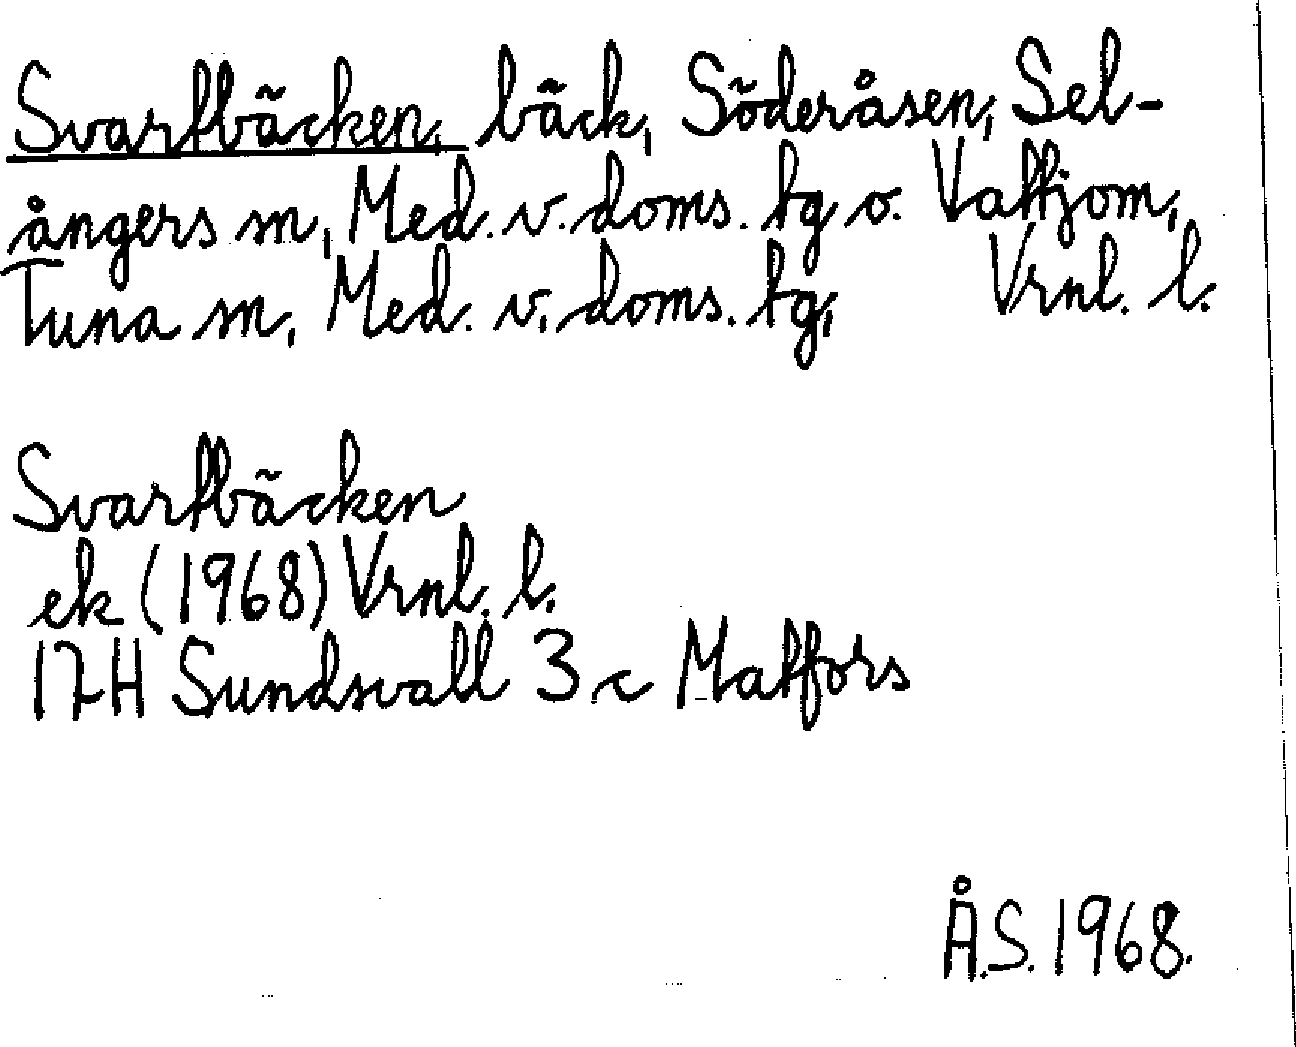 Svartbäcken, bäck, Söderåsen, Sel-
ångers sn, Med. v. doms. tg o. Vattjom,
Tuna sn, Med. v. doms. tg, Vrnl. l.
Svartbäcken
ek (1968) Vrnl. l.
17H Sundsvall 3 c Matfors
Å.S. 1968.